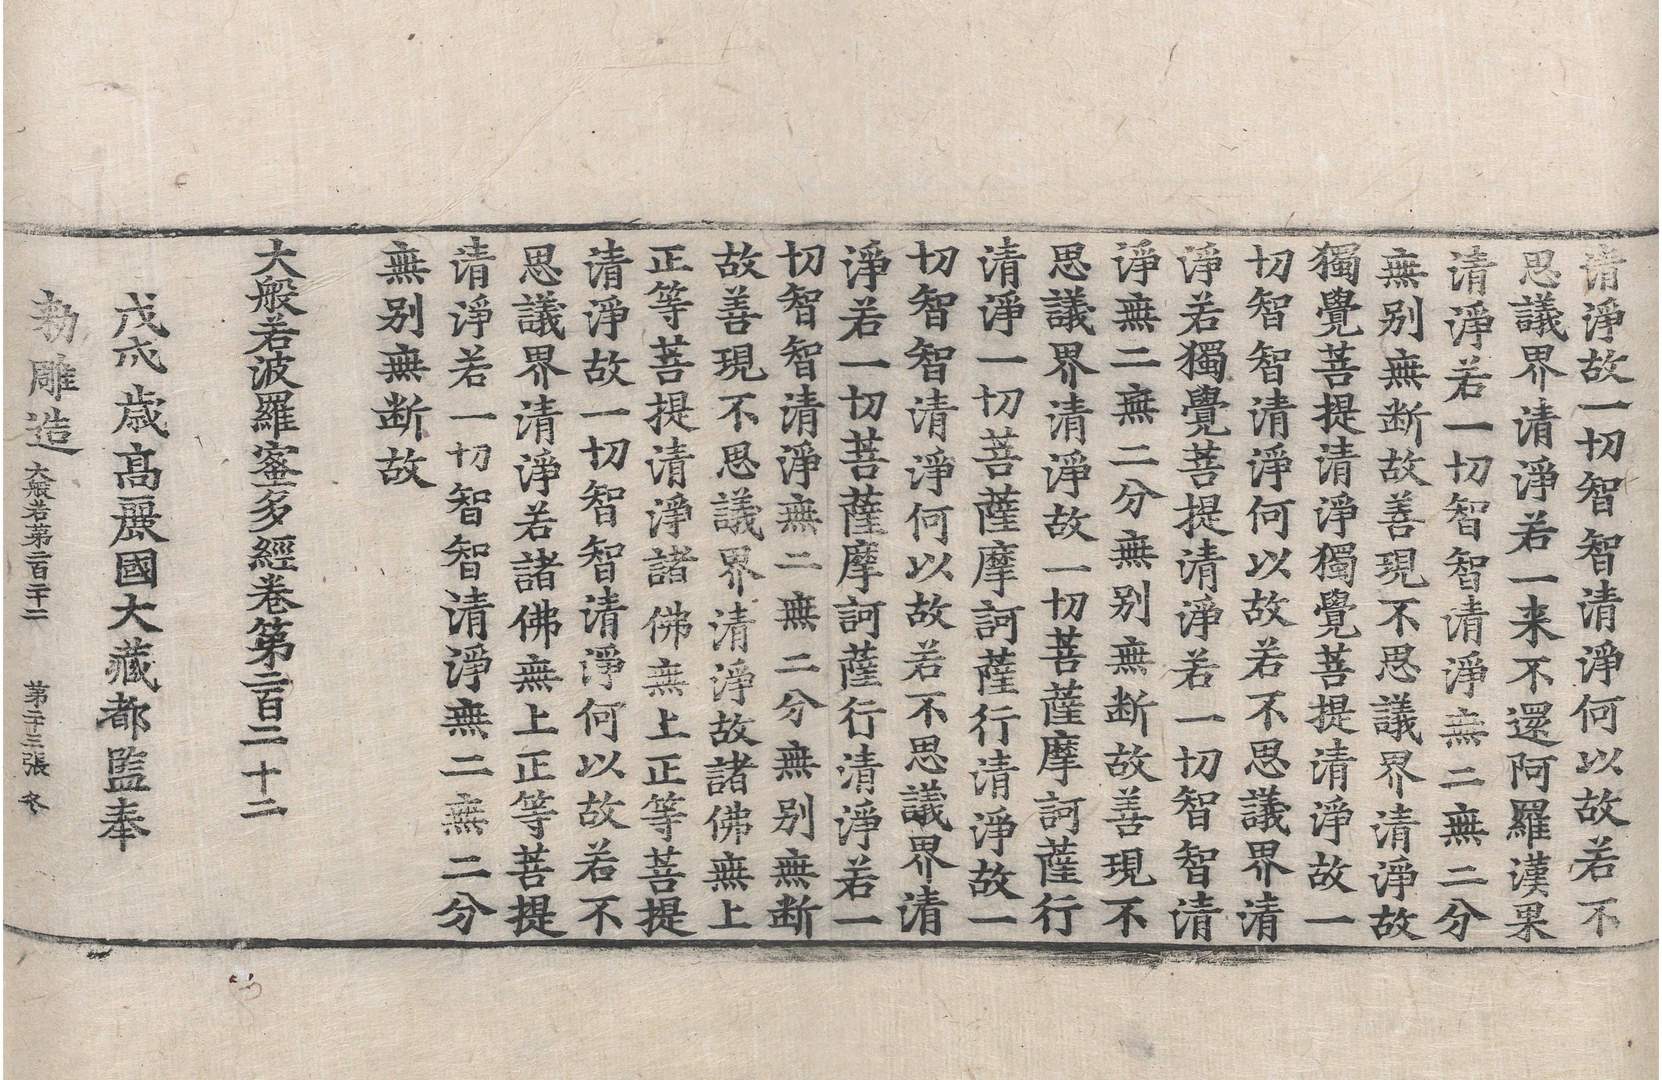 清淨故一切智智清淨何以故若不
思議界清淨若一来不還阿羅漢果
清淨若一切智智清淨無二無二分
無別無断故善現不思議界清淨故
獨覺菩提清淨獨覺菩提清淨故一
切智智清淨何以故若不思議界清
淨若獨覺菩提清淨若一切智智清
淨無二無二分無別無断故善現不
思議界清淨故一切菩薩摩訶薩行
清淨一切菩薩摩訶薩行清淨故一
切智智清淨何以故若不思議界清
淨若一切菩薩摩訶薩行清淨若一
切智智清淨無二無二分無別無断
故善現不思議界清淨故諸佛無上
正等菩提清淨諸佛無上正等菩提
清淨故一切智智清淨何以故若不
思議界清淨若諸佛無上正等菩提
清淨若一切智智清淨無二無二分
無別無断故
大般若波羅蜜多經卷第二百二十二
戊戌歲高麗國大藏都監奉
勑雕造 大般若第二百二十二 第二十三張